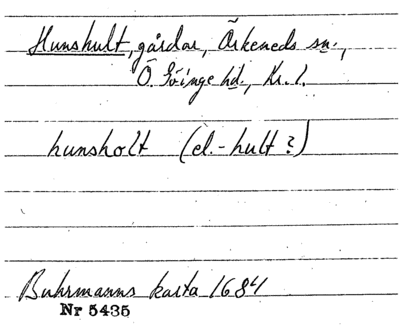 Hunshult, gårdar, Örkeneds sn.,
Ö. Göinge hd., Kr. l.
hunsholt (el. -hult ?)
Buhrmanns karta 1684
Nr 5435